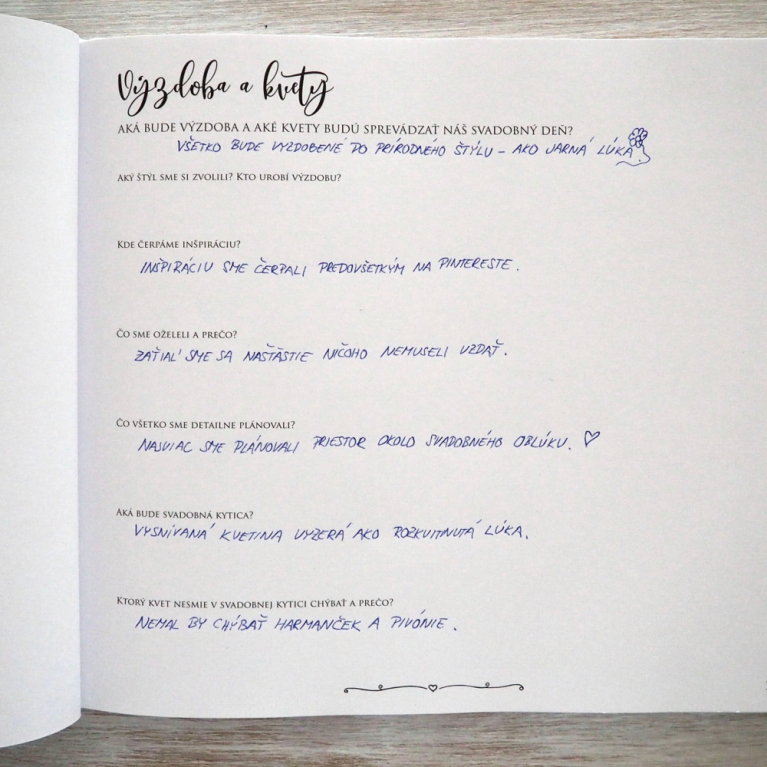 Výzdoba a kvety
AKÁ BUDE VÝZDOBA A AKÉ KVETY BUDÚ SPREVÁDZAŤ NÁŠ SVADOBNÝ DEŇ?
VŠETKO BUDE VYZDOBENÉ DO PRÍRODNÉHO ŠTÝLU – AKO JARNÁ LÚKA
AKÝ ŠTÝL SME SI ZVOLILI? KTO UROBÍ VÝZDOBU?
KDE ČERPÁME INŠPIRÁCIU?
INŠPIRÁCIU SME ČERPALI PREDOVŠETKÝM NA PINTERESTE.
ČO SME OŽELELI A PREČO?
ZATIAĽ SME SA NAŠŤASTIE NIČOHO NEMUSELI VZDAŤ.
ČO VŠETKO SME DETAILNE PLÁNOVALI?
NAJVIAC SME PLÁNOVALI PRIESTOR OKOLO SVADOBNÉHO OBLÚKU.
AKÁ BUDE SVADOBNÁ KYTICA?
VYSNÍVANÁ KVETINA VYZERÁ AKO ROZKVITNUTÁ LÚKA.
KTORÝ KVET NESMIE V SVADOBNEJ KYTICI CHÝBAŤ A PREČO?
NEMAL BY CHÝBAŤ HARMANČEK A PIVÓNIE.